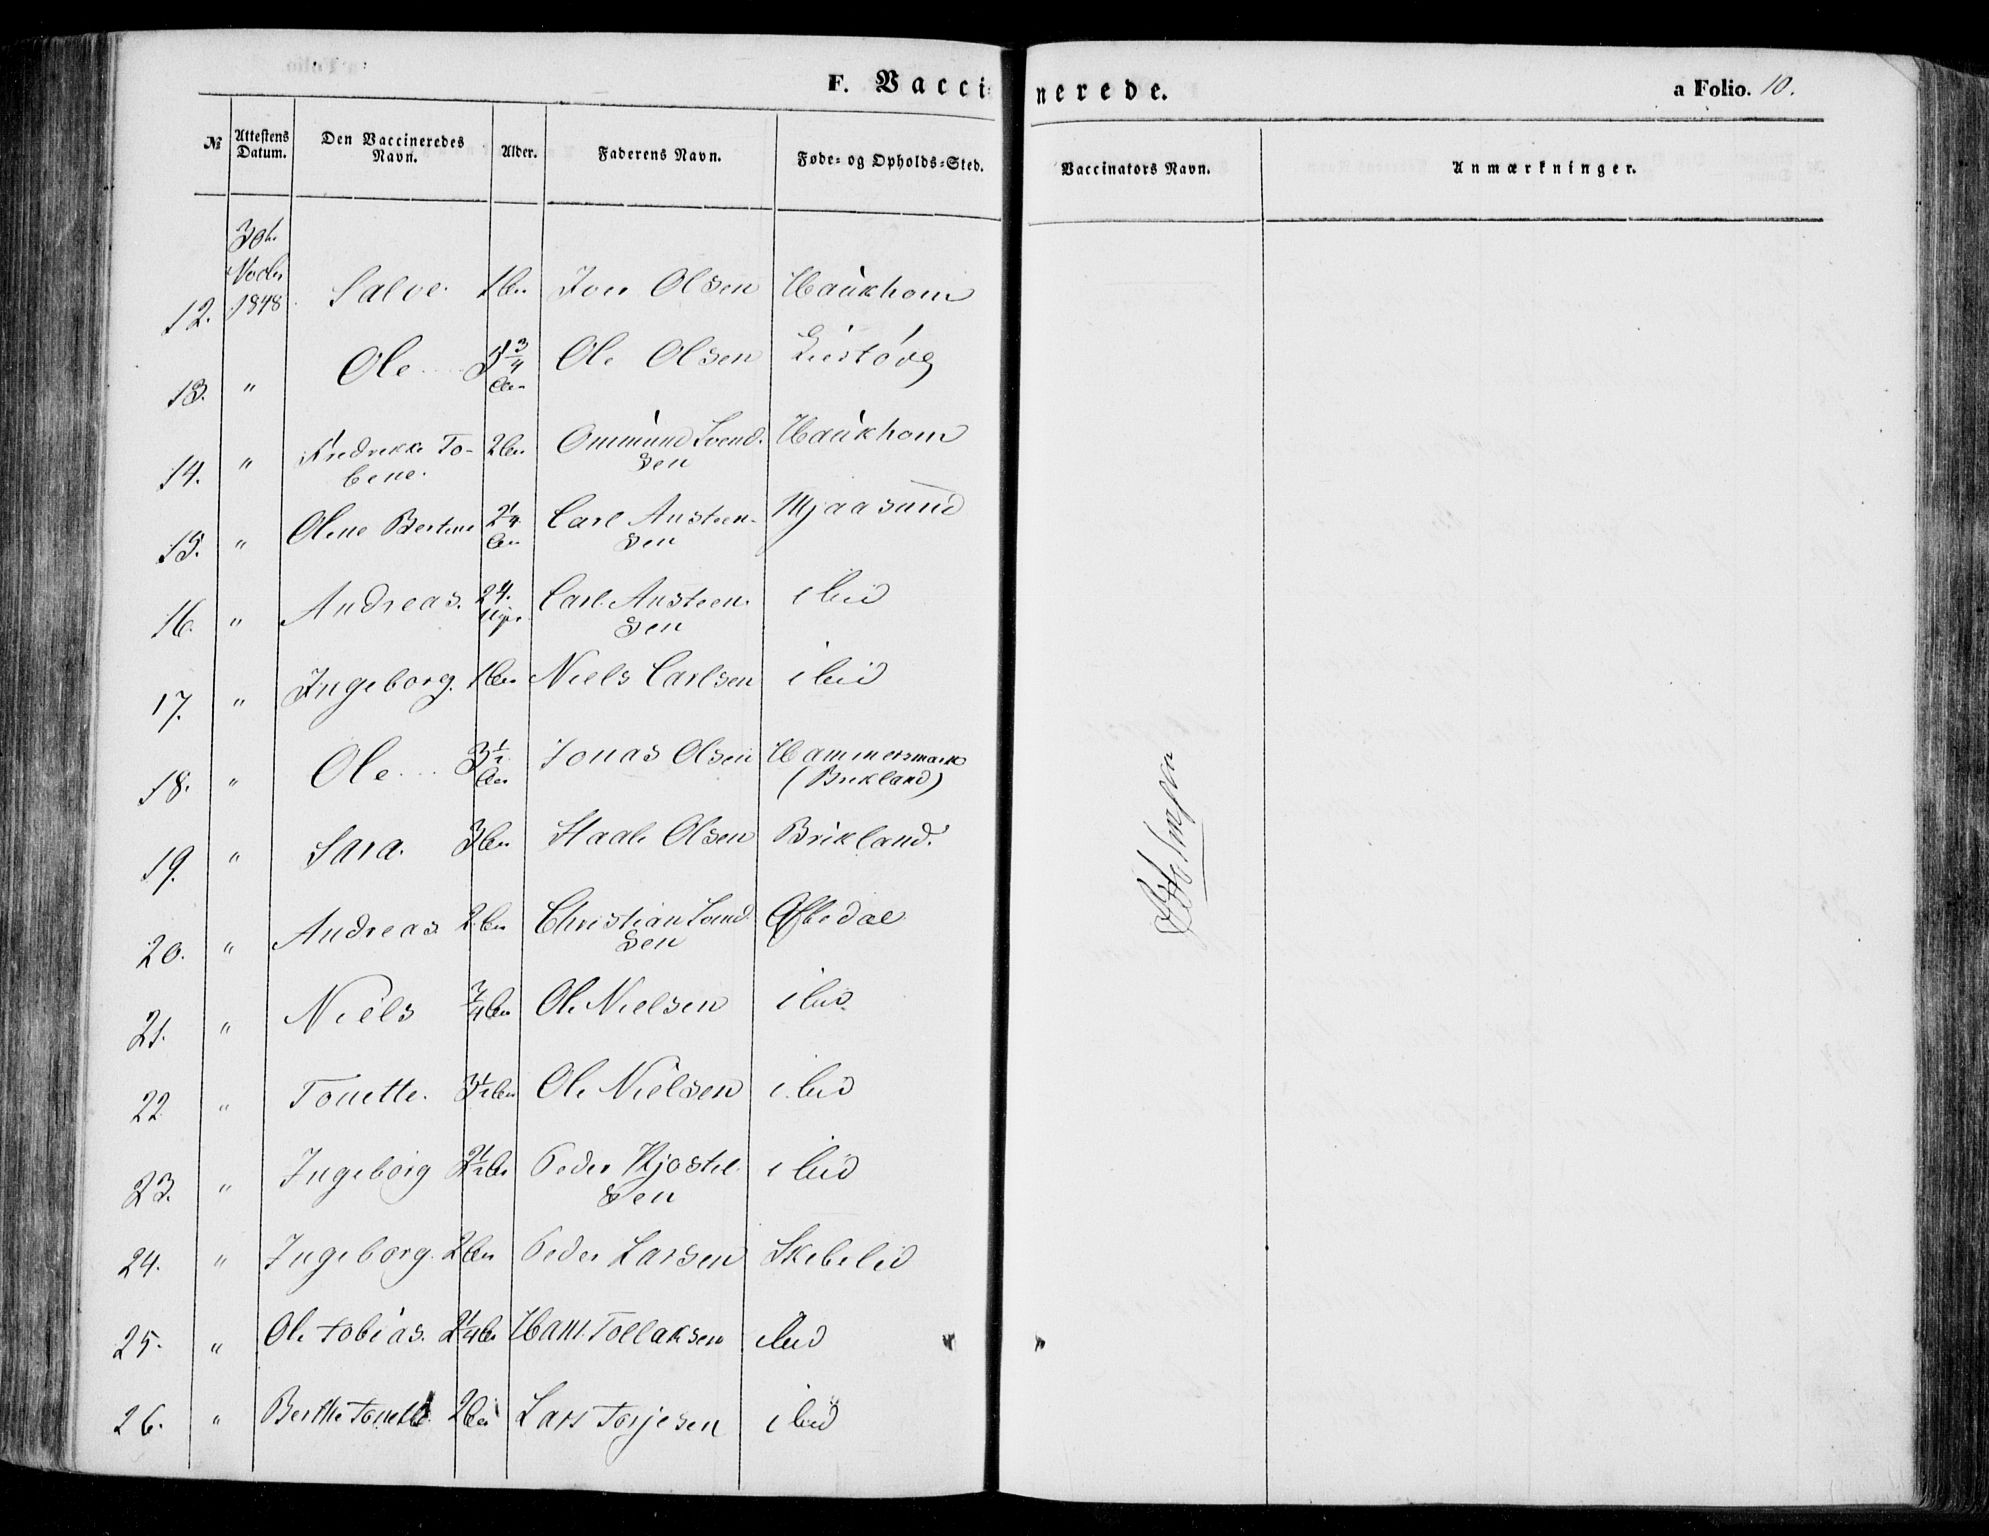 F. Vaccinerede.
a Folio. 10.
№ Attestens Datum. Den Vaccineredes Navn. Alder. Faderens Navn. Føde- og Opholds-Sted. Vaccinators Navn. Anmærkninger.
12. 1848. Salve. 1 Olsen Haukhom
13. " Ole 3/4 Ole Olsen
14. " Fredrikke To-
bene. 2 Ommund Svend-
sen Haukhom
15. " Olene Bertine 2 1/4 Carl Austeen-
sen Mjaasund
16. " Andreas. 24. Carl Austeen-
sen ibid
17. " Ingeborg. 1 Niels Carlsen ibid
18. " Ole 3 1/2 Jonas Olsen Hammersmark
(Brekland)
19. " Sara. 3 Olsen Brikland.
20. " Andreas. 2 Christian Svend-
sen Øftedal
21. " Niels 3/4 Ole Nielsen ibid
22 " Tonette. 3 1/2 Ole Nielsen ibid
23. " Ingeborg 2 1/2 Peder Kjostel-
sen ibid
24. " Ingeborg. 2 Peder Larsen Skebelid
25. " Ole Tobias. 2 1/4 Hans Tollaksen ibid
26. " Berthe Tonette 2 Lars Torjesen ibid